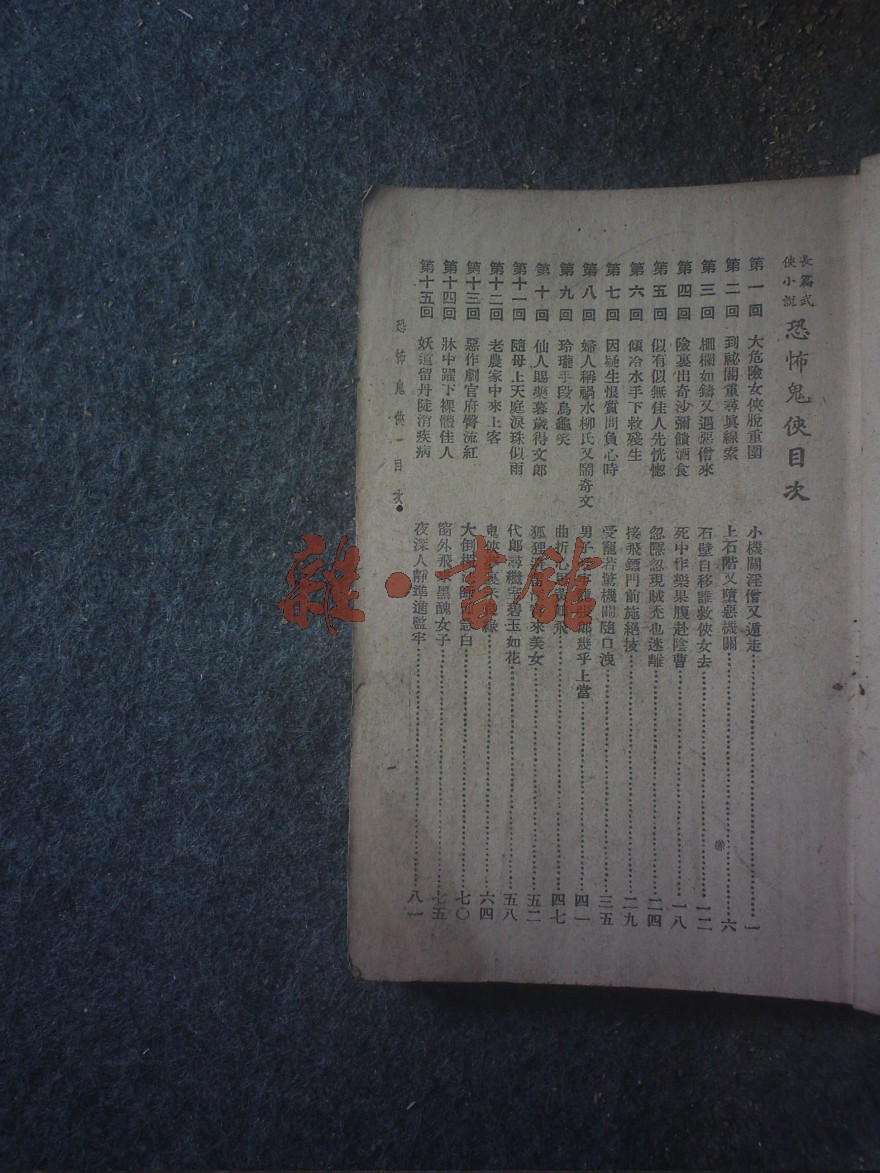 長篇武
俠小說
恐怖鬼俠目次
第一回 大危險女俠脫重圍 小機關淫僧又遁走 一
第二回 到祕閣重尋真線索 上石階又墮惡機關 六
第三回 柵欄如鑄又遇惡僧來 石壁自移誰救俠女去 一二
第四回 險裏出奇沙彌饋酒食 死中作樂果腹赴陰曹 一八
第五回 似有似無佳人先恍惚 忽隱忽現賊禿也迷離 二四
第六回 傾冷水手下救殘生 接飛鏢門前施絕技 二九
第七回 因疑生恨質問負心時 受寵若驚機關隨口洩 三五
第八回 婦人稱禍水柳氏又鬧奇文 男子 郎幾乎上當 四一
第九回 玲瓏手段烏龜笑 曲折心 飛 四七
第十回 仙人賜藥暮歲得文郎 狐狸 來美女 五二
第十一回 隨母上天庭淚珠似雨 代郎尋繼室碧玉如花 五八
第十二回 老農家中來上客 鬼俠 裏 綠 六四
第十三回 惡作劇官府臀流紅 大倒 師 白 七〇
第十四回 牀中躍下裸體佳人 窗外飛 黑醜女子 七五
第十五回 妖道留丹陡消疾病 夜深人靜準進監牢 八一
恐怖鬼俠 目次 一
雜·書館